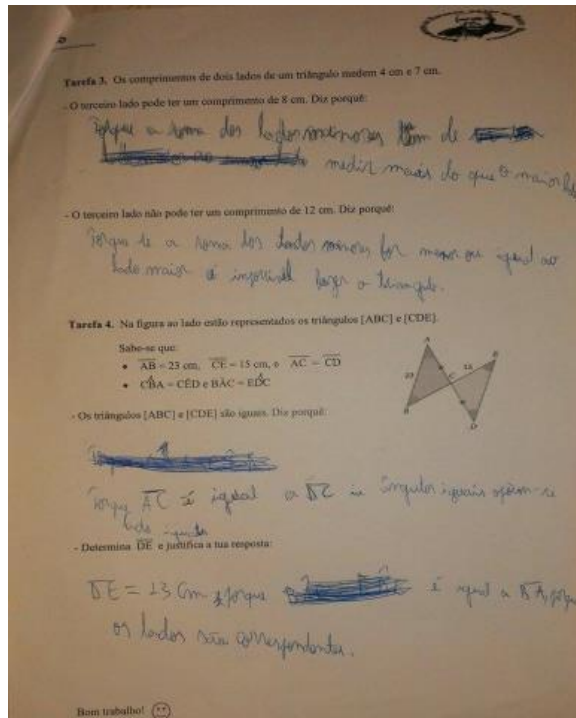 Tarefa 3. Os comprimentos de dois lados de um triângulo medem 4 cm e 7 cm.
- O terceiro lado pode ter um comprimento de 8 cm. Diz porquê:
Porque a soma dos lados menores tem de
medir mais do que o maior lado
- O terceiro lado não pode ter um comprimento de 12 cm. Diz porquê:
Porque se a soma dos lados menores for menor ou igual ao
lado maior é impossível fazer o triângulo.
Tarefa 4. Na figura ao lado estão representados os triângulos [ABC] e [CDE].
Sabe-se que:
• AB = 23 cm, CE = 15 cm, e AC = CD
• CBA = CÊD e BÂC = EDC
A
B
C
E
D
23
15
- Os triângulos [ABC] e [CDE] são iguais. Diz porquê:
Porque AC é igual a DC e ângulos iguais opõem-se
lado iguais
- Determina DE e justifica a tua resposta:
DE = 23 Cm porque é igual a BA,
os lados são correspondentes.
Bom trabalho!